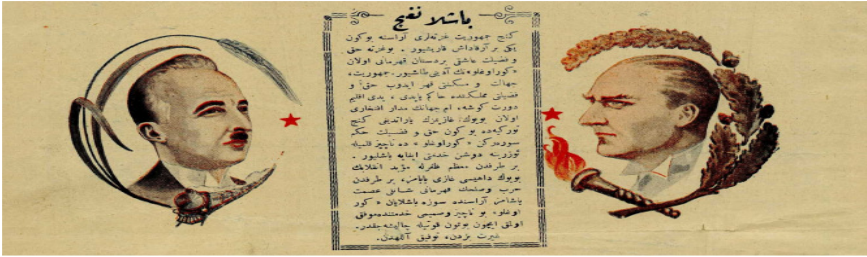 باشلانغیج
كنج جمهوریت غزته‌لری آراسنه بوكون
یكی بر آرقداش قاریشیور. بو غزته حق
و فضیلت عاشقی بر داستان قهرمانی اولان
«كوراوغلو» نك آدینی طاشیور. جمهوریت،
جهالت و مسكنتی قهر ایدوب حق و
فضیلتی مملكتده حاكم یاپدی، یدی اقلیم
دورت كوشه‌ده، تم جهانك مدار افتخاری
اولان بویوك غازیمزك یاراتدیغی كنج
توركیه‌ده بو كون حق و فضیلت حكم
سوررکن «كوراوغلو» ده ناچیز قلمیله
اوزرینه دوشن خدمتی ایفایه باشلیور.
بر طرفدن معظم ظفرله مؤید انقلابك
بویوك داهیسی غازی باباسن، بر طرفدن
حرب وصلحك قهرمانی شانلی عصمت
پاشامز آراسنده سوزه باشلایان «كور
اوغلو» بو ناچیز و صمیمی خدمتنده موفق
اولمق ایچون بوتون قوتیله چالیشه‌جقدر.
غیرت بزدن، توفیق آللهدن.